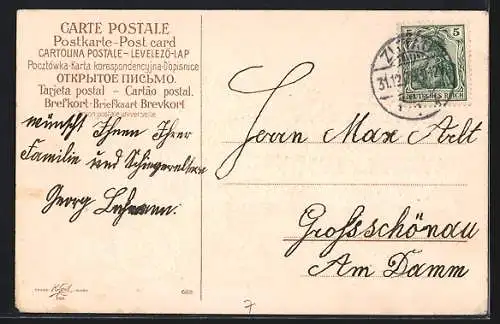 CARTE POSTALE
Postkarte-Post card
CARTOLINA POSTALE-LEVELEZÖ-LAP
Pocztówka-Karta korespondencyjna-Dopisnice
ОТКРЫТОЕ ПИСЬМО.
Tarjeta postal - Cartão postal.
Brefkort-Briefkaart Brevkort
Union postale universelle.
wünscht Ihnen Ihrer
Familie und Schwiegereltern
Georg Lehmann.
5
DEUTSCHES REICH
31.12
Herrn Max Arlt
Grossschönau
Am Damm
7